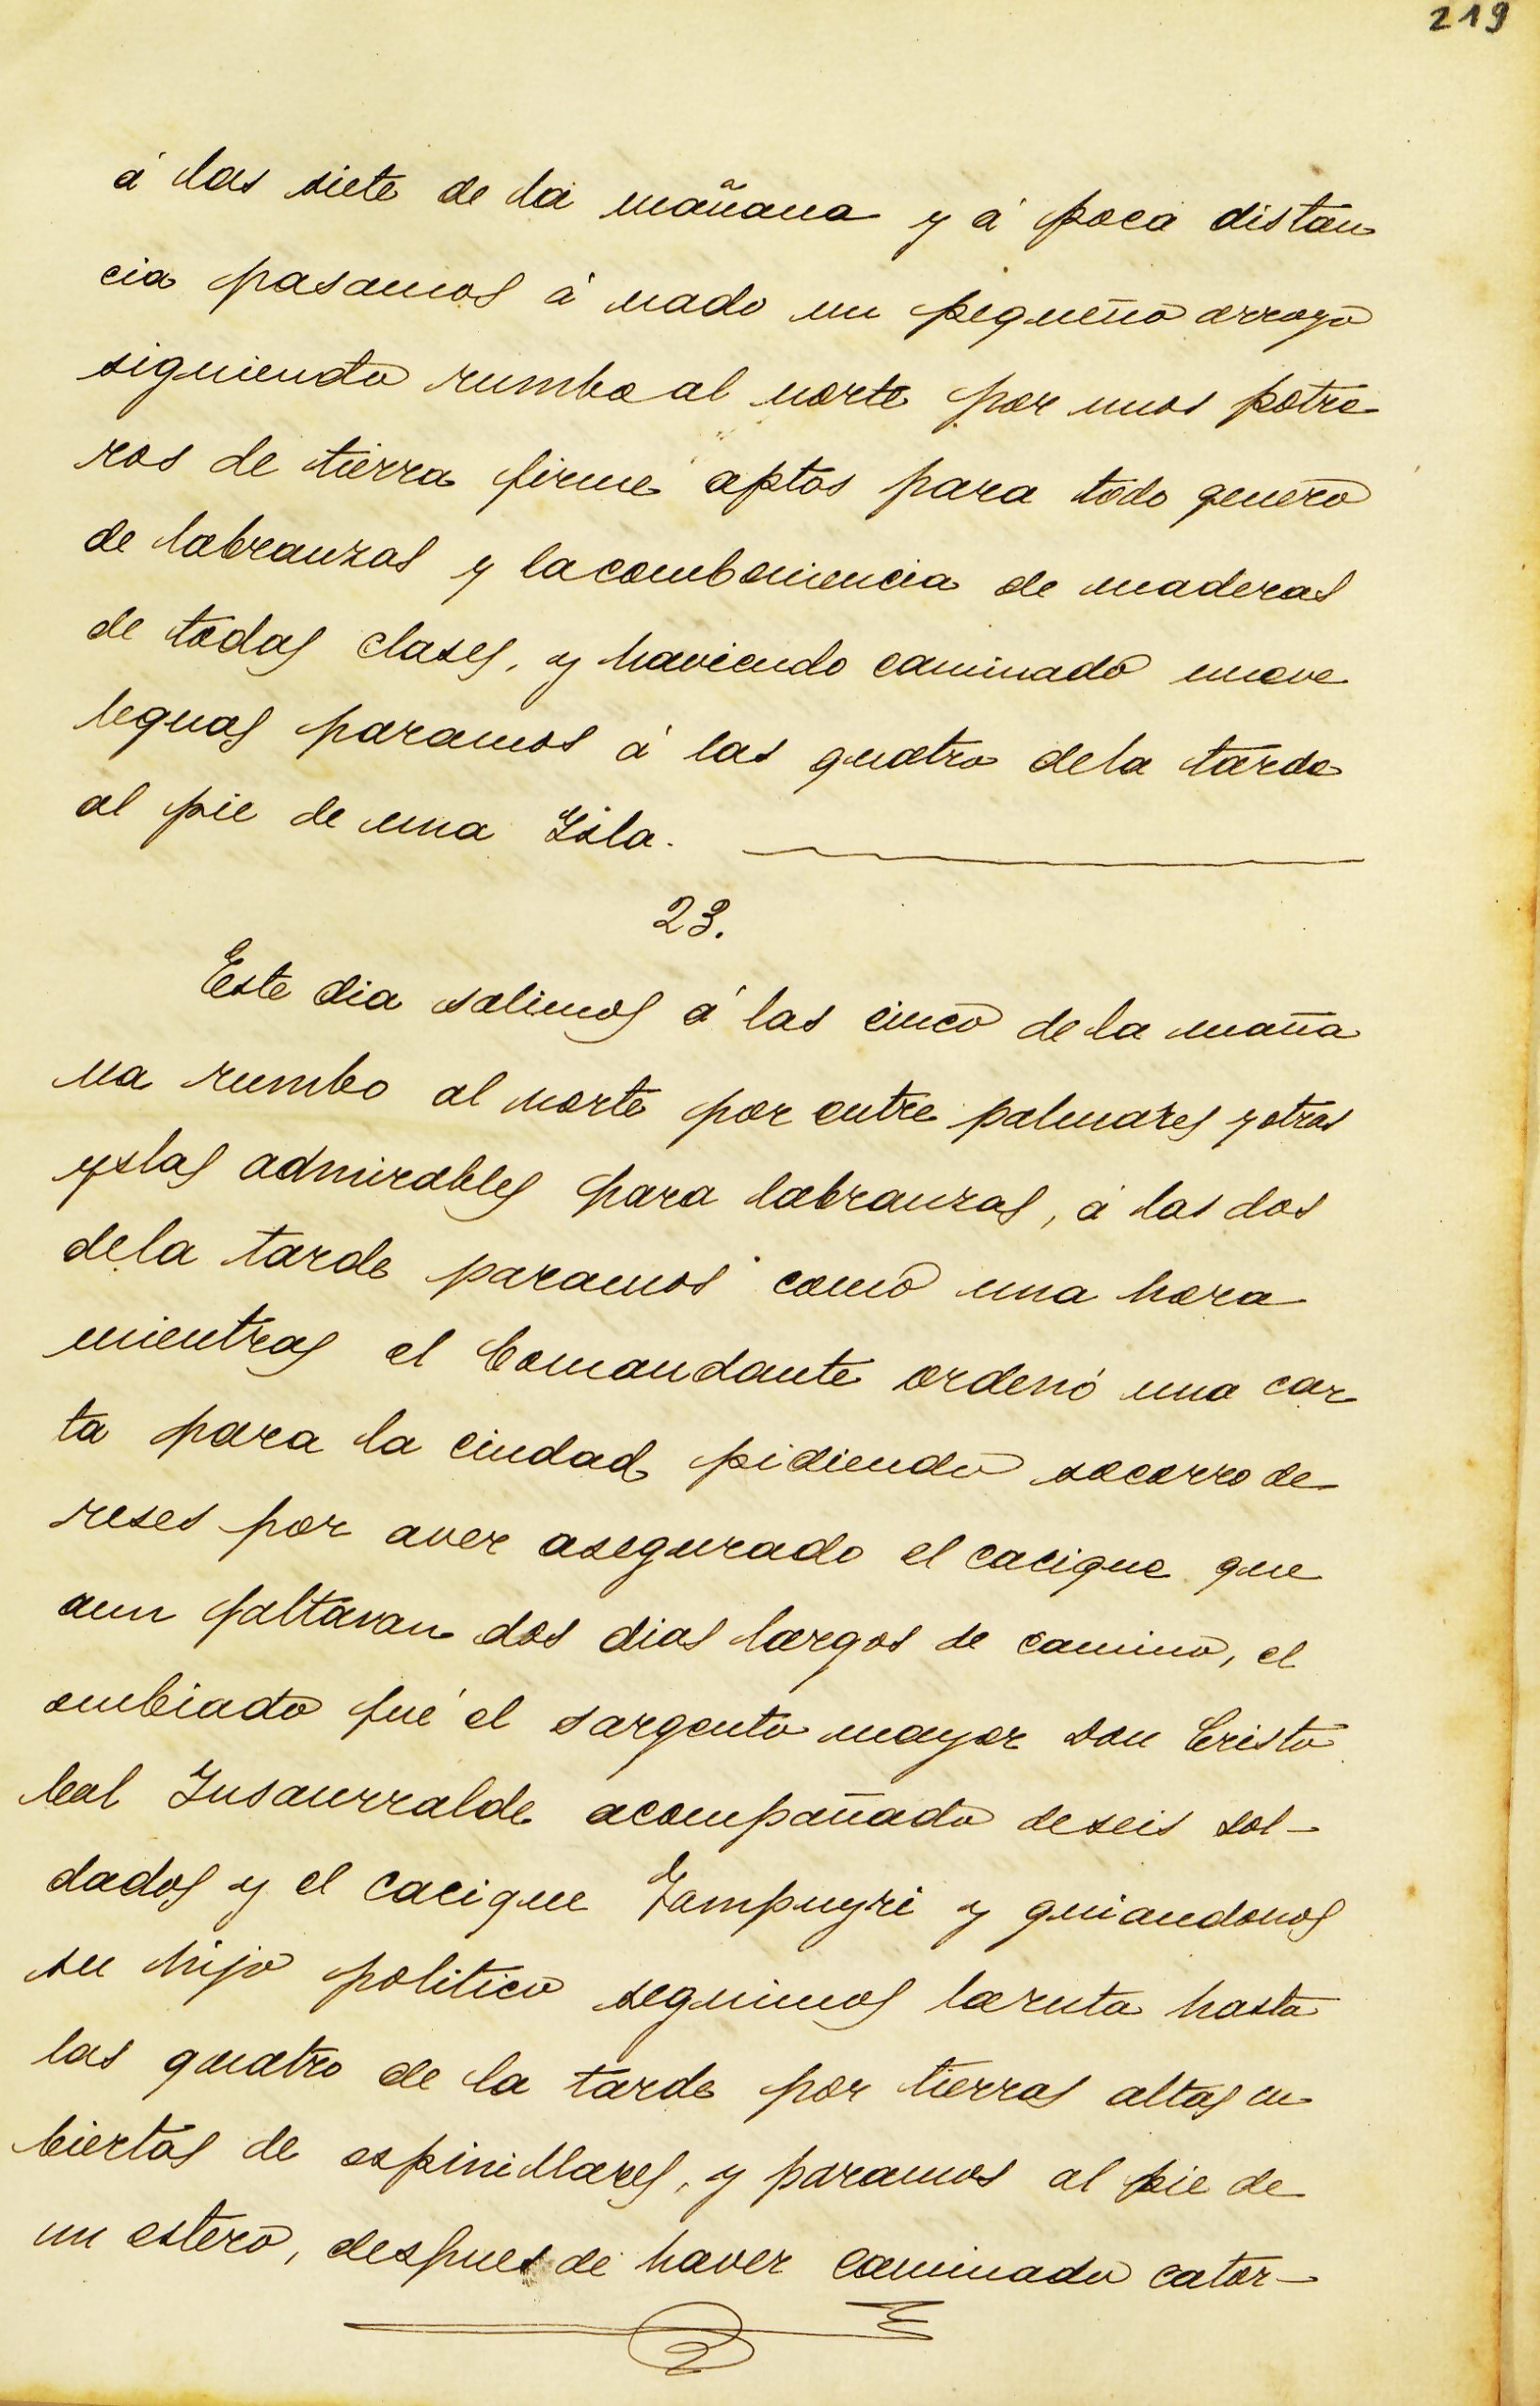 219
á las siete de la mañana y á poca distan
cia pasamos á nado un pequeño arroyo
siguiendo rumbo al norte por unos potre
ros de tierra firme aptos para todo genero
de labranzas y la combeniencia de maderas
de todas clases, y haviendo caminado nueve
leguas paramos á las quatro dela tarde
al pie de una Isla.
23.
Este dia salimos á las cinco de la maña
na rumbo al norte por entre palmares y otras
yslas admirables para labranzas, á las dos
dela tarde paramos como una hora
mientras el Comandante ordenó una car
ta para la ciudad pidiendo socorro de
reses por aver asegurado el cacique que
aun faltavan dos dias largos de camino, el
embiado fué el sargento mayor Don Cristo
bal Insaurralde acompañado de seis sol-
dados y el cacique Yampuyri y guiandonos
su hijo politico seguimos la ruta hasta
las quatro de la tarde por tierras altas cu
biertas de espinillares, y paramos al pie de
un estero, despues de haver caminado cator-